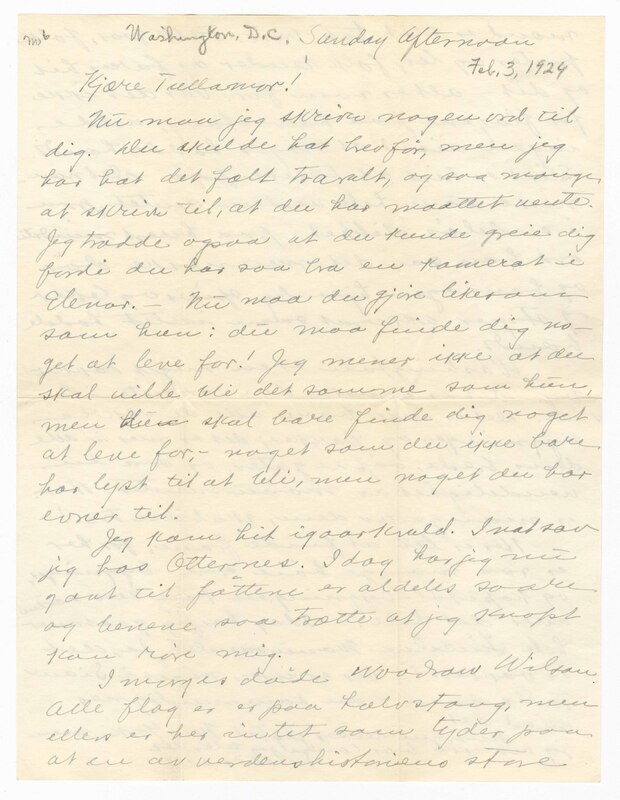 Washington, D.C. Sunday Afternoon
Feb. 3, 1924
Kjære Tullamor!
Nu maa jeg skrive nogen ord til
dig. Du skulde hat brev før, men jeg
har hat det fælt travalt, og saa mange
at skrive til, at du har maattet vente.
Jeg trodde ogsaa at du kunde greie dig
fordi du har saa bra en kamerat i
Elenor. — Nu maa du gjøre likesom
som hun: du maa finde dig no-
get at leve for! Jeg mener ikke at du
skal ville bli det samme som hun,
men skal bare finde dig noget
at leve for, – noget som du ikke bare
har lyst til at bli, men noget du har
evner til.
Jeg kom hit igaarkveld. Inat sov
jeg hos Otternes. Idag har jeg nu
gaat til føttene er aldeles saare
og benene saa trætte at jeg knapt
kan røre mig.
I morges døde Woodrow Wilson.
Alle flag er er paa halvstang, men
ellers er her intet som tyder paa
at en av verdenshistoriens store